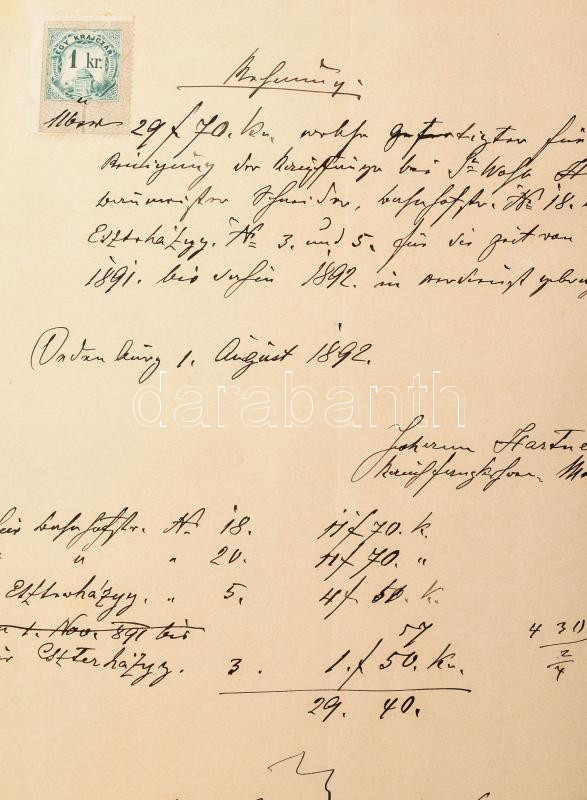 EGY KRAJCZÁR
1 kr.
Rechnung
Über
29 f 70. Kr. welche gefertigter für
Reinigung der Rauchfänge bei
Baumeister Schneider, Bahnhofstr. No 18.
Eszterházyg. No 3. und 5. für die Zeit von
1891. bis dahin 1892. in Verdienst gebr
Oedenburg 1. August 1892.
darabanth
Johann Hartne
Rauchfangkehrer- M
für Bahnhofstr. No 18. 11 f 70. K.
" " " 20. 11 f 70. "
Eszterházyg. " 5. 4 f 50 K.
1. Nov. 891 bis
für Eszterházyg. 3. 1. f 50. Kr.
29. 40.
4 30
2
4